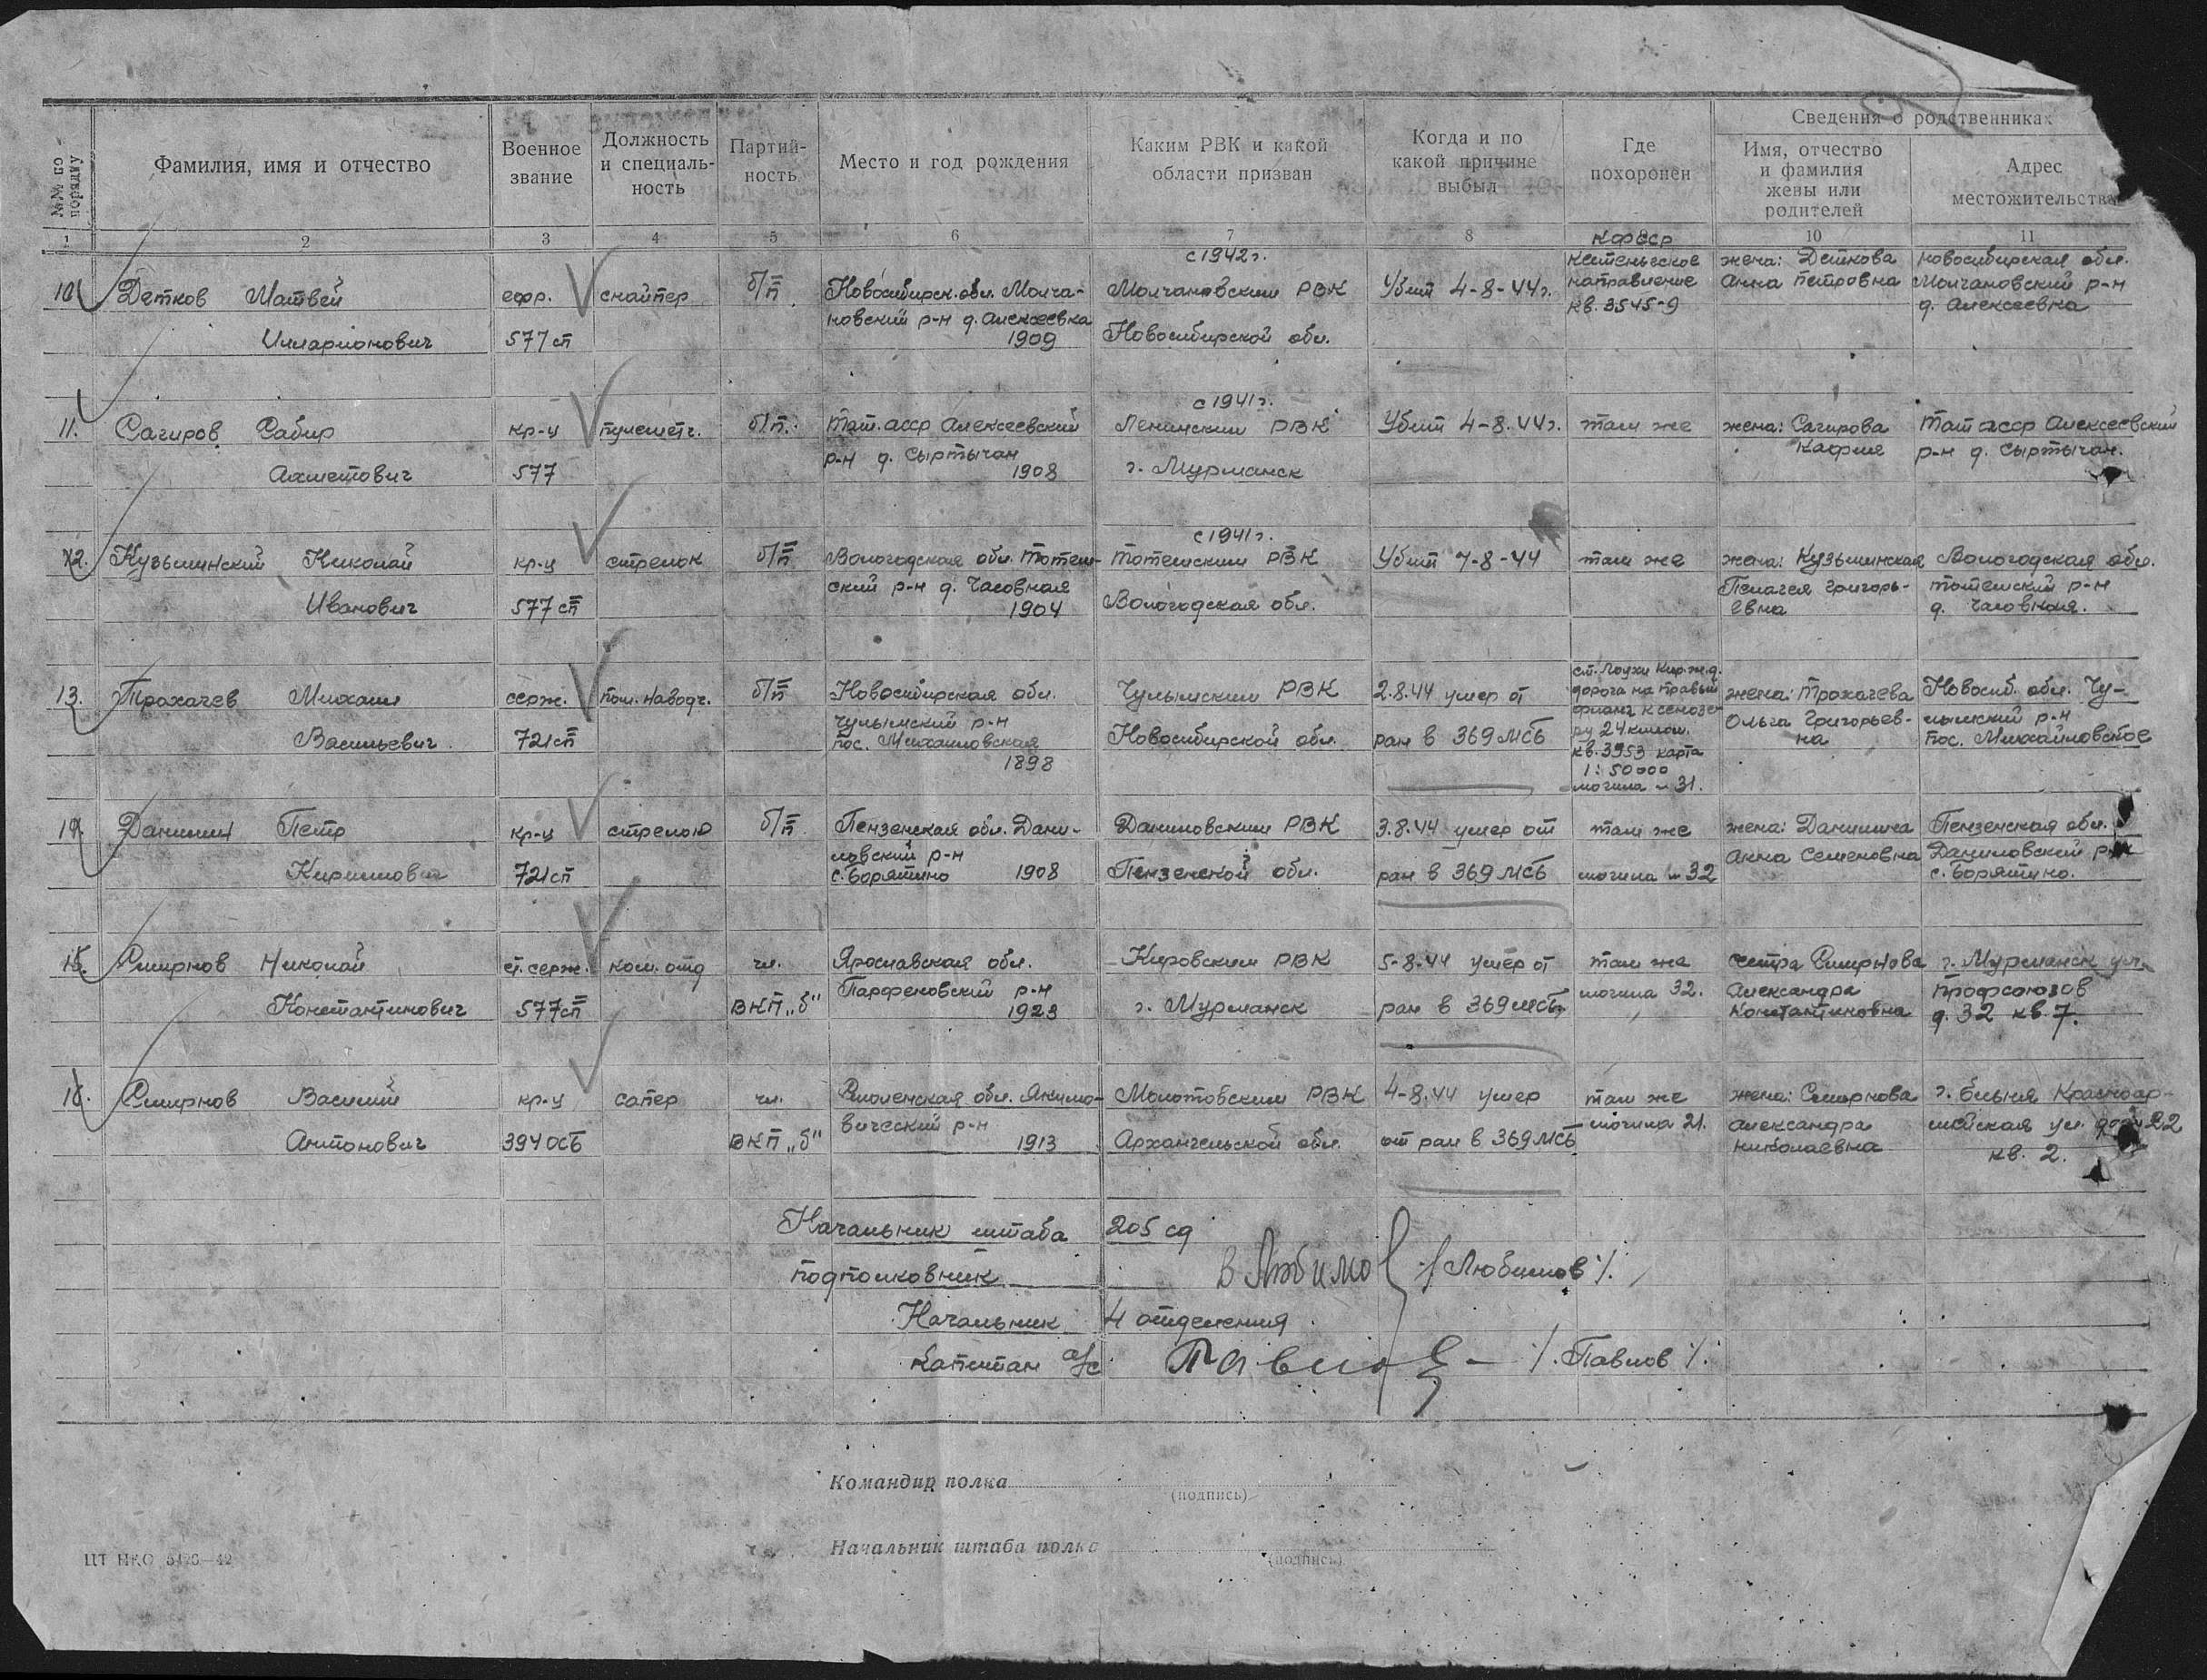 №№ по порядку
Фамилия, имя и отчество
Военное звание
Должность и специальность
Партийность
Место и год рождения
Каким РВК и какой области призван
Когда и по какой причине выбыл
Где похоронен
Сведения о родственниках
Имя, отчество и фамилия жены или родителей
Адрес местожительства
1 2 3 4 5 6 7 8 9 10 11
10. Детков Матвей ефр. снайпер б/п Новосибирск. обл. Молча- с 1942 г. Молчановским РВК Убит 4-8-44 г. КФССР Кестеньгское направление кв. 3545-9 жена: Деткова Анна Петровна Новосибирская обл. Молчановский р-н д. Алексеевка
Илларионович 577 сп новский р-н д. Алексеевка 1909 Новосибирской обл.
11. Сагиров Сабир кр-ц пулеметч. б/п. Тат. асср Алексеевский с 1941 г. Ленинским РВК Убит 4-8-44 г. там же жена: Сагирова Кафия Тат асср Алексеевский
Ахметович 577 р-н д. Сыртычан 1908 г. Мурманск р-н д. Сыртычан.
12. Кузьминский Николай кр-ц стрелок б/п Вологодская обл. Тотем- с 1941 г. Тотемским РВК Убит 7-8-44 там же жена: Кузьминская Вологодская обл.
Иванович 577 сп ский р-н д. Часовная 1904 Вологодская обл. Пелагея Григорь-евна Тотемский р-н д. Часовная.
13. Трохачев Михаил серж. пом. наводч. б/п Новосибирская обл. Чулымским РВК 2.8.44 умер от ст. Лоухи Кир. ж.д. дорога на правый фланг к сенозе-ру 24 килом. кв. 3953 карта 1:50000 могила - 31. жена: Трохачева Ольга Григорьев-на Новосиб. обл. Чу-
Васильевич 721 сп Чулымский р-н пос. Михайловская 1898 Новосибирской обл. ран в 369 МСБ лымский р-н пос. Михайловское
14. Данилин Петр кр-ц стрелок б/п Пензенская обл. Дани- Даниловским РВК 3.8.44 умер от там же жена: Данилина Пензенская обл.
Кириллович 721 сп ловский р-н с. Борятино 1908 Пензенской обл. ран в 369 МСБ могила - 32 Анна Семеновна Даниловский р-н с. Борятино.
15. Смирнов Николай ст. серж. ком. отд чл. Ярославская обл. Кировским РВК 5-8-44 умер от там же сестра Смирнова г. Мурманск ул.
Константинович 577 сп ВКП „б" Парфеновский р-н 1923 г. Мурманск ран в 369 МСБ могила 32. Александра Константиновна Профсоюзов д. 32 кв. 7.
16. Смирнов Василий кр-ц сапер чл. Смоленская обл. Якимо- Молотовским РВК 4-8.44 умер там же жена: Смирнова г. Красноар-
Антонович 394 ОСБ ВКП „б" вический р-н 1913 Архангельской обл. от ран в 369 МСБ могила 21. Александра Николаевна мейская ул. дом 22 кв. 2.
Начальник штаба 205 сд
подполковник В Любимов /Любимов/.
Начальник 4 отделения
Капитан а/с Павлов /. Павлов /.
Командир полка
(подпись)
Начальник штаба полка
(подпись)
ЦТ НКО